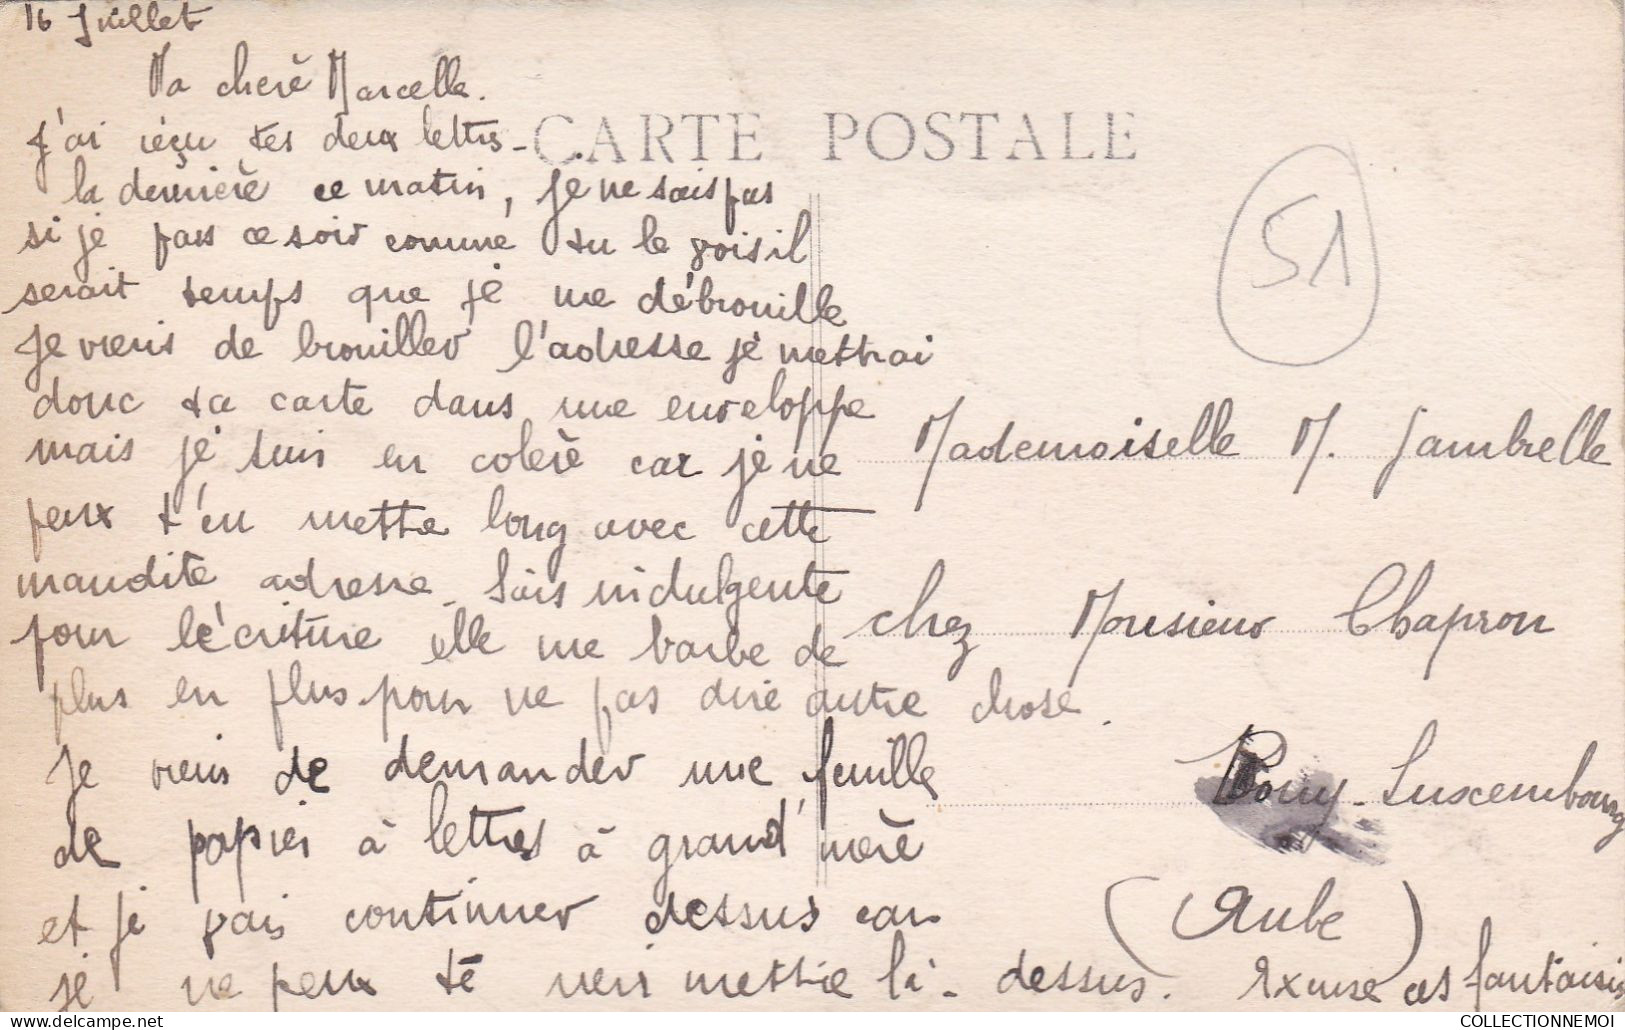 16 Juillet
Ma cherè Marcelle.
J'ai réçu tes deux lettres -
la dernière ce matin, je ne sais pas
si je pars ce soir comme tu le vois il
serait temps que je me débrouille
Je viens de brouiller l'adresse je mettrai
donc ta carte dans une enveloppe
mais je suis en colerè car je ne
peux t'en mettre long avec cette
maudite adresse. Sois indulgente
pour lécriture elle me barbe de
plus en plus. pour ne pas dire autre chose.
Je viens de demander une feuille
de papier à lettres à grand'mère
et je vais continuer dessus car
je ne peux te rien mettre là - dessus. Excuse ces fantaisis
CARTE POSTALE
51
Mademoiselle M. Jambrelle
chez Monsieur Chapron
Pouy-Luxembourg
(Aube)
COLLECTIONNEMOI